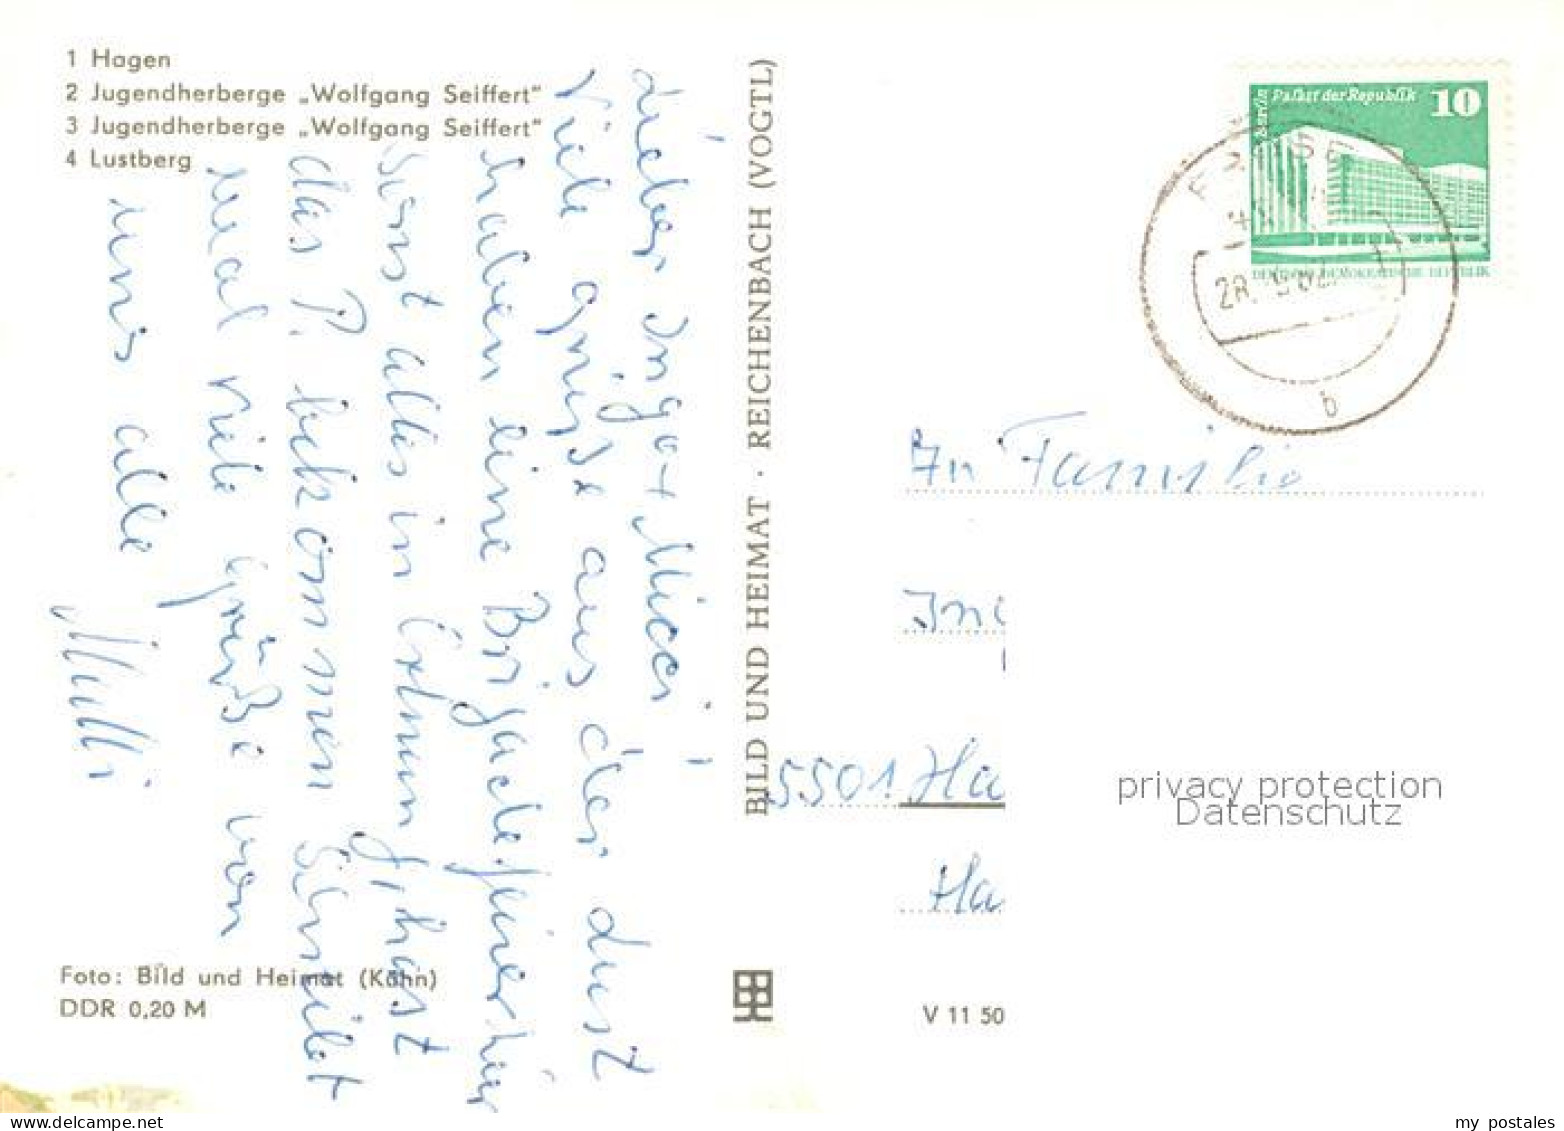 1 Hagen
2 Jugendherberge „Wolfgang Seiffert“
3 Jugendherberge „Wolfgang Seiffert“
4 Lustberg
Lieber Ingo + Micci
Viele grüsse aus der
haben eine Brigadefeier hier
sonst alles in Ordnung, hast
das P. bekommen Schreibt
mal viele Grüße von
uns alle
Foto: Bild und Heimat (Kühn)
DDR 0,20 M
BILD UND HEIMAT · REICHENBACH (VOGTL)
Berlin
Palast der Republik 10
DEUTSCHE DEMOKRATISCHE REPUBLIK
28.
b
An Familie
In
5501 Ha
Ha
V 11 50
privacy protection
Datenschutz
www.delcampe.net
my_postales